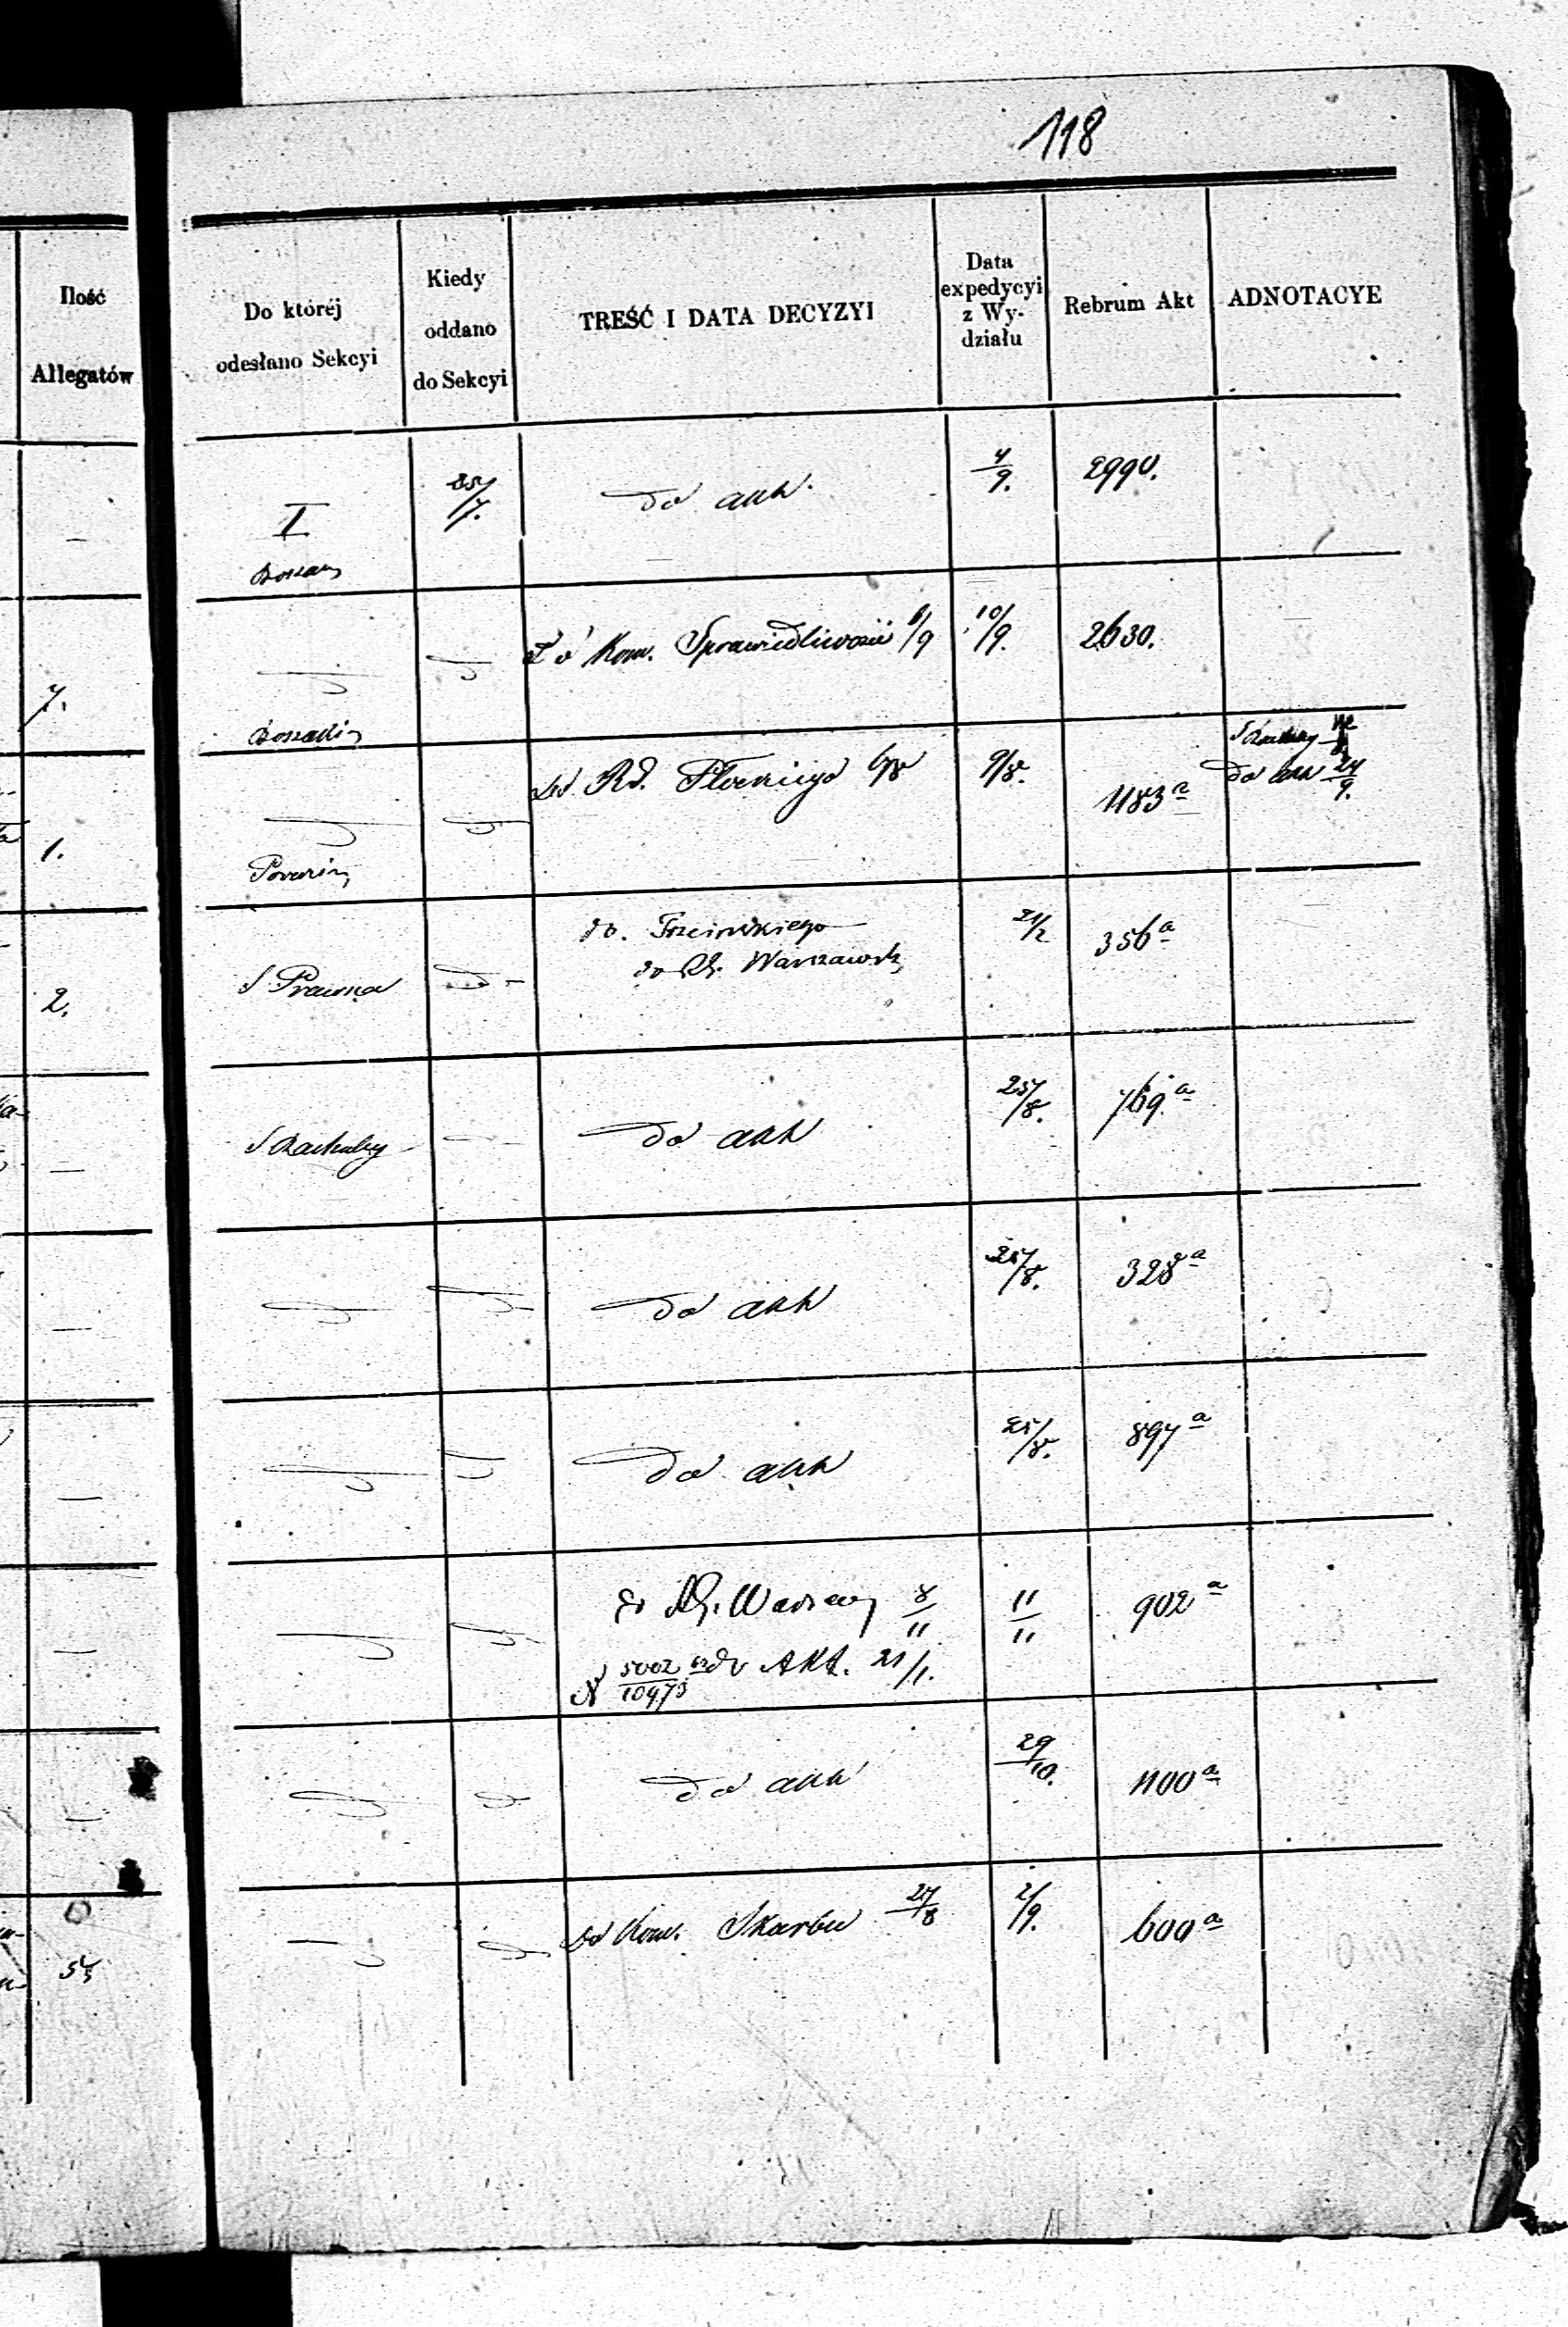 118
Ilość
Allegatów
Do któréj
odesłano Sekcyi
Kiedy
oddano
do Sekcyi
TREŚĆ I DATA DECYZYI
Data
expedycyi
z Wy-
działu
Rebrum Akt
ADNOTACYE
—
I
25/7.
do akt.
4/9.
2990.
7.
Do Kom. Sprawiedliwości 6/9
10/9.
2630.
1.
Do Rd. Płockiego 6/8
9/8.
1183 a
do akt 24/9.
2.
S Prawna
do. Trzcińskiego
do Rd. Warszawsk
21/2
356 a
—
S Rachuby
do akt
25/8.
769 a
—
do akt
25/8.
328 a
—
do akt
25/8.
897 a
—
do Rd. Warszaw 8/11
11/11
902 a
N 5002/10973 do Akt. 21/1.
—
do akt
29/10.
1100 a
5
Do Kom. Skarbu 27/8
2/9.
600 a